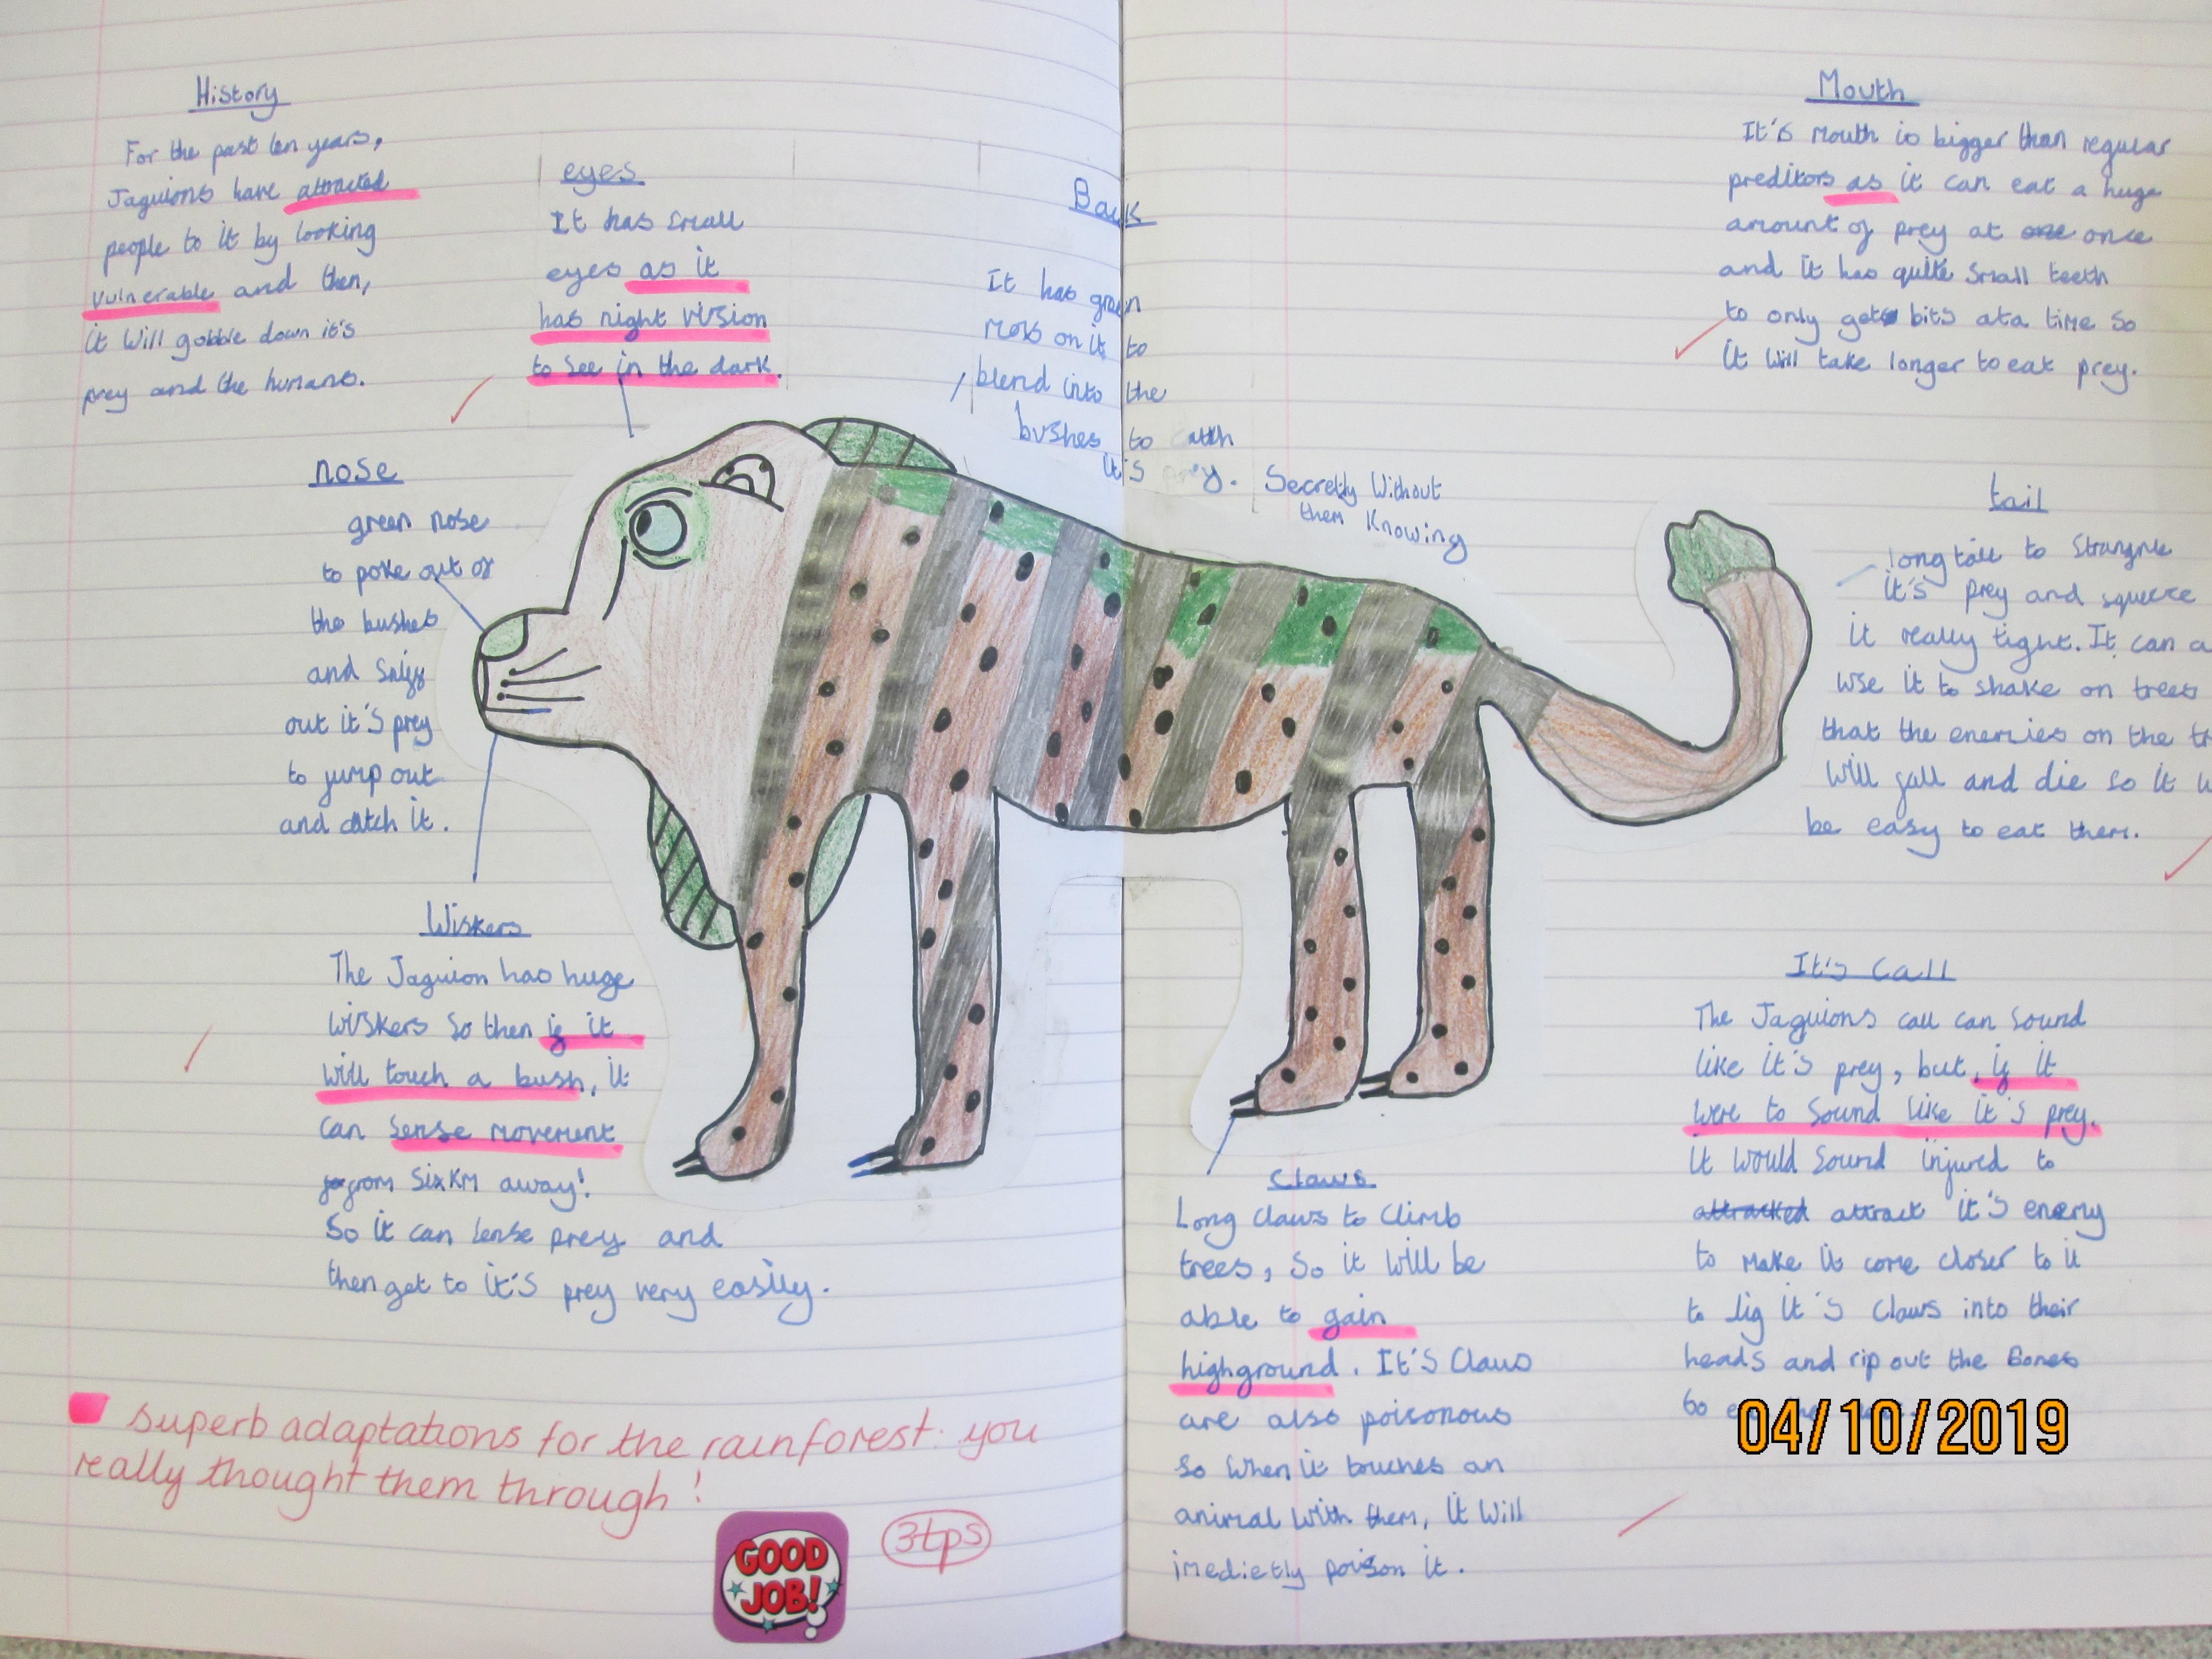 History
For the past ten years,
Jaguions have attracted
people to it by looking
vulnerable and then,
it will gobble down it's
prey and the humans.
eyes
It has small
eyes as it
has night vision
to see in the dark.
Back
It has green
moss on it to
blend into the
bushes to catch
it's prey. Secretly Without
them Knowing
nose
green nose
to poke out of
the bushes
and sniff
out it's prey
to jump out
and catch it.
Wiskers
The Jaguion has huge
wiskers so then if it
will touch a bush, it
can sense movement
from Six KM away!
So it can sense prey and
then get to it's prey very easily.
superb adaptations for the rainforest. you
really thought them through!
GOOD
JOB!
3tps
Mouth
It's mouth is bigger than regular
preditors as it can eat a huge
amount of prey at one once
and it has quite small teeth
to only get bits at a time so
it will take longer to eat prey.
tail
long tail to
it's prey and squeeze
it really tight. It can
use it to shake on trees
that the enemies on the
will fall and die so it
be easy to eat them.
It's call
The Jaguions call can sound
like it's prey, but, if it
were to sound like it's prey.
it would sound injured to
attracked attract it's enemy
to make it come closer to it
to dig it's claws into their
heads and rip out the Bones
to
04/10/2019
Claws
Long claws to climb
trees, so it will be
able to gain
highground. It's Claws
are also poisonous
so when it touches an
animal with them, it will
imedietly poison it.